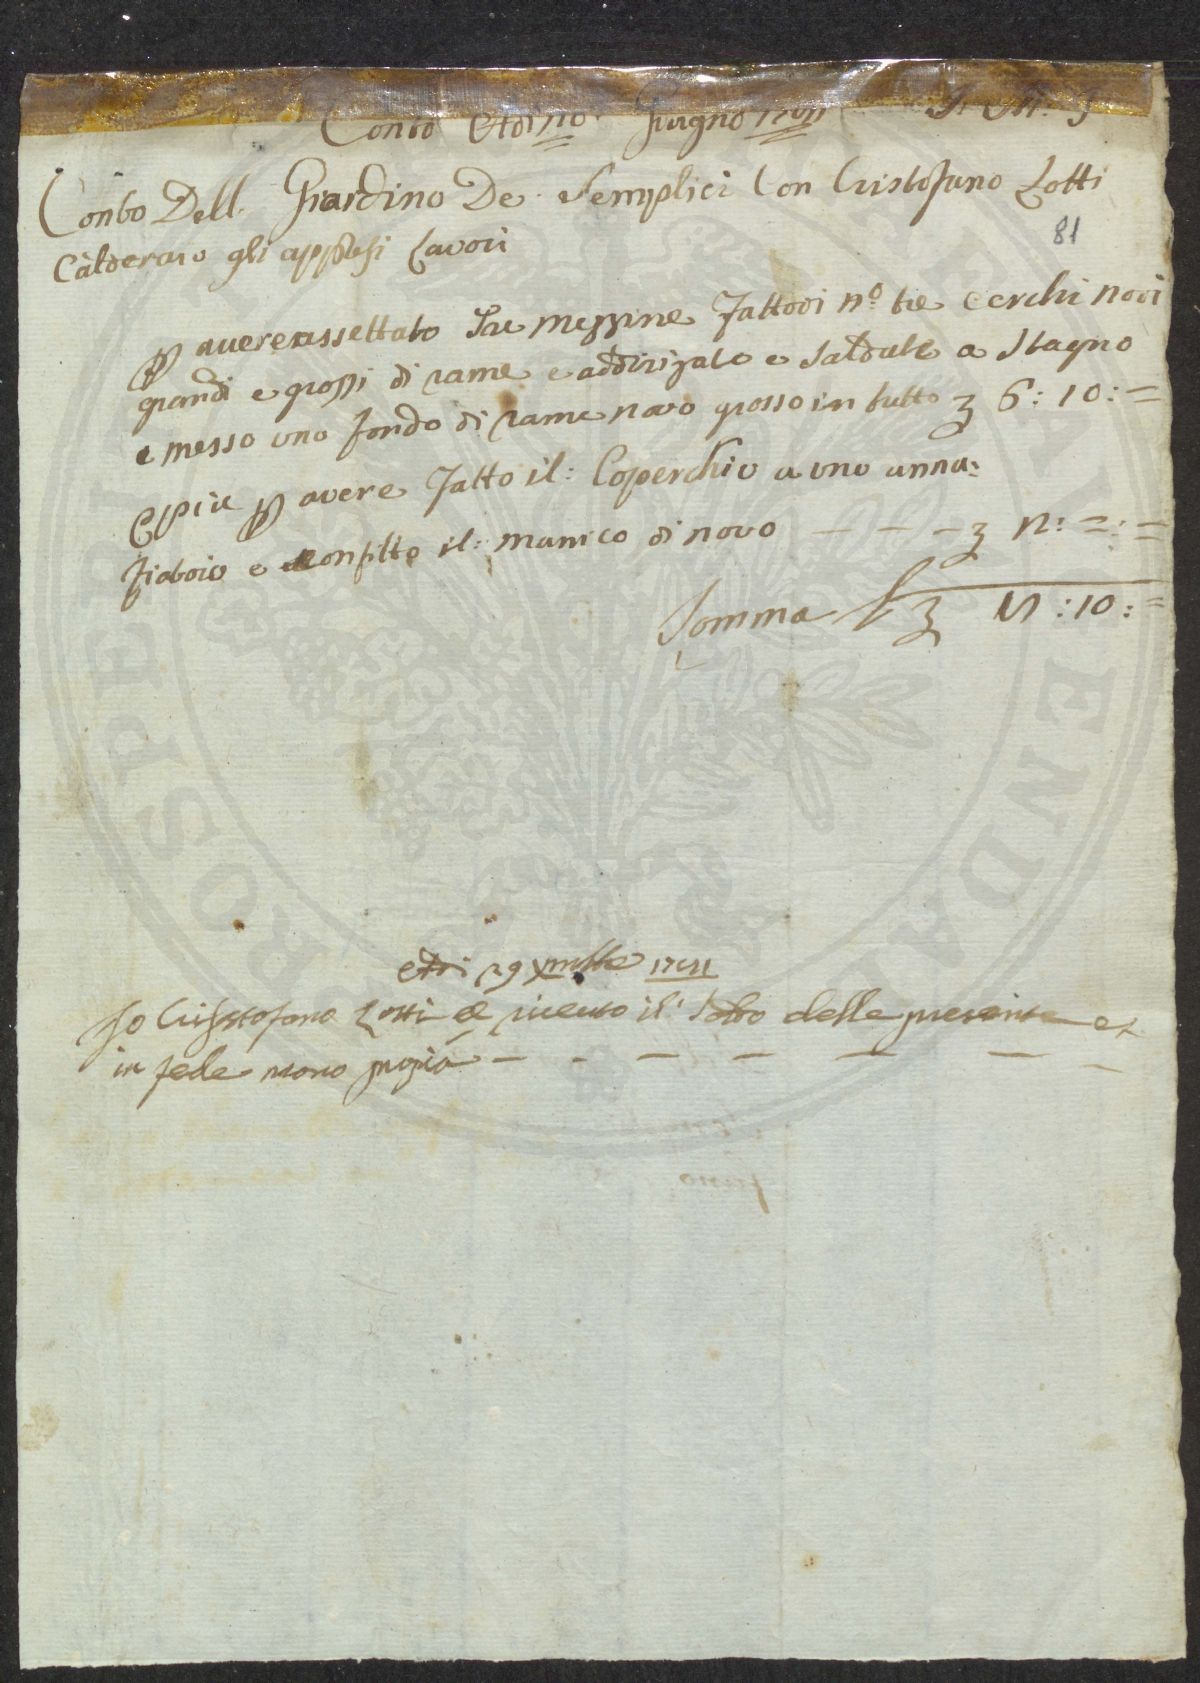 Conto Adi Giugno
Conto Dell. Giardino De Semplici Con Cristofano Lotti
Calderaio gli apprsi Lavori
81
p avere rassettato Tre mezzine Fattovi n.º tre cerchi novi
grandi e grossi di rame e addirizate e saldate a stagno
e messo uno fondo di rame novo grosso in tutto 6 : 10 : =
E piu p avere Fatto il : Coperchio a uno anna:
fiatoio e confitto il : manico di novo - - - =: =
Somma : 10 : =
Adi 29 Xmbre
Io Cristofano Lotti ò riceuto il Saldo delle presente et
in fede mano propia - - - - - -